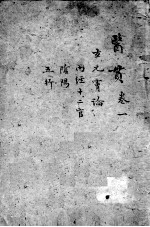 醫貫 卷一
玄元膚論
內經十二官
陰陽
五行